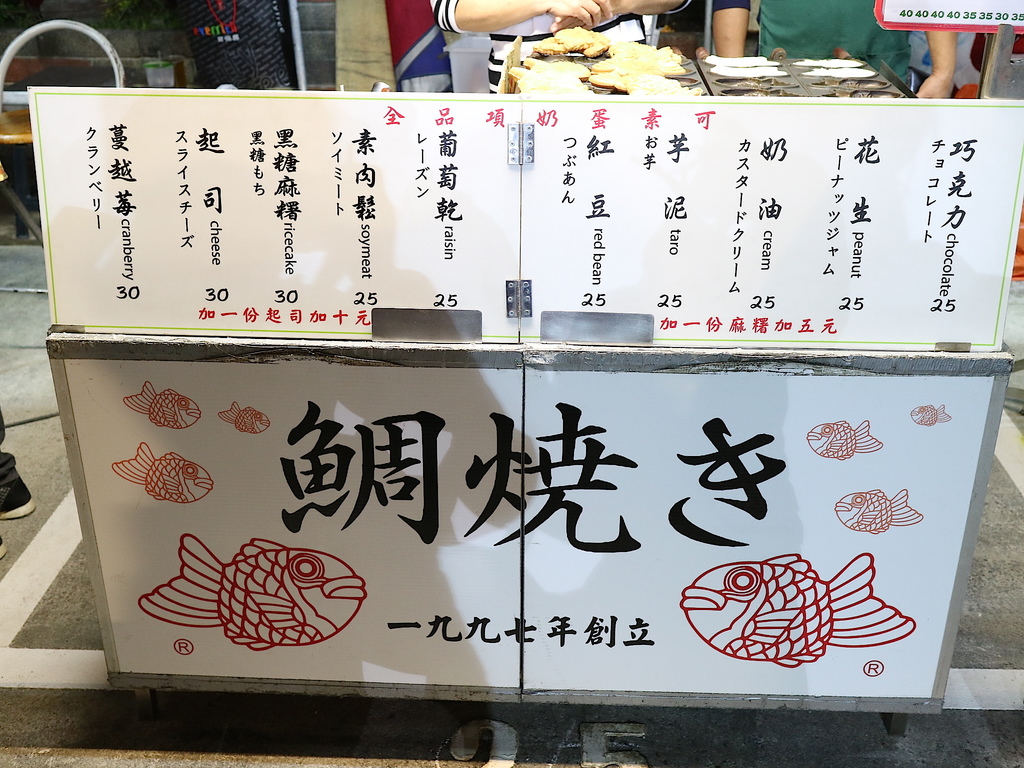 40 40 40 40 35 35 30 35
全品項奶蛋素可
巧克力 chocolate 25
チョコレート
花生 peanut 25
ピーナッツジャム
奶油 cream 25
カスタードクリーム
芋泥 taro 25
お芋
紅豆 red bean 25
つぶあん
葡萄乾 raisin 25
レーズン
素肉鬆 soymeat 25
ソイミート
黑糖麻糬 ricecake 30
黒糖もち
起司 cheese 30
スライスチーズ
蔓越莓 cranberry 30
クランベリー
加一份起司加十元
加一份麻糬加五元
鯛焼き
一九九七年創立
®
®